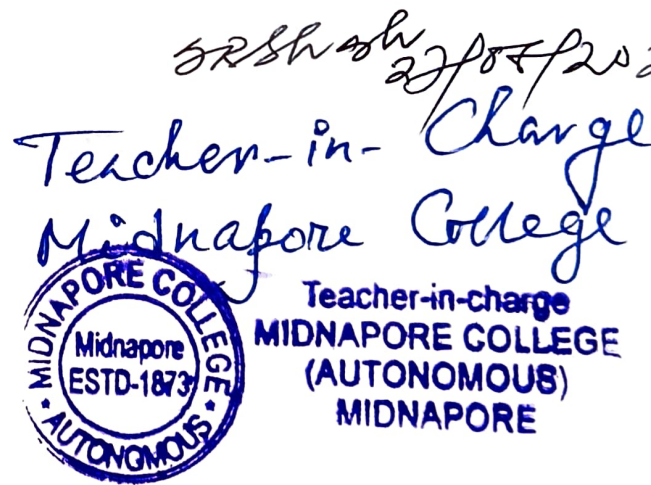 Teacher-in-Charge
Midnapore College
MIDNAPORE COLLEGE
Midnapore
ESTD-1873
AUTONOMOUS
Teacher-in-charge
MIDNAPORE COLLEGE
(AUTONOMOUS)
MIDNAPORE